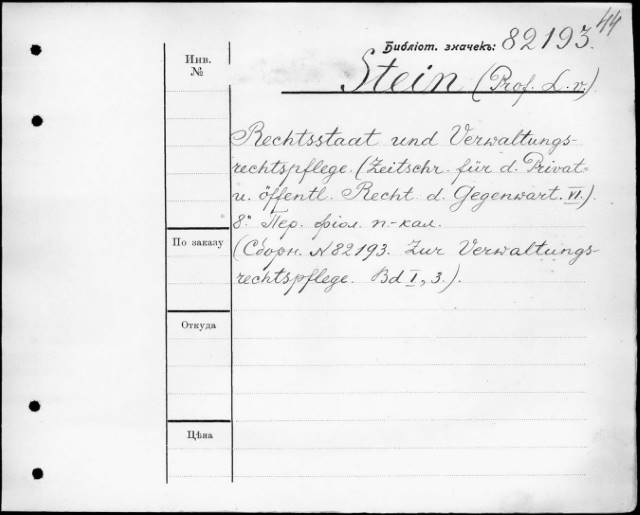 44
Библіот. значекъ: 82193.
Инв.
№
Stein (Prof. L. v.)
Rechtsstaat und Verwaltungs-
rechtspflege. (Zeitschr. für d. Privat-
u. öffentl. Recht d. Gegenwart. VI.)
8°. Пер. фіол. п-кал.
По заказу
(Сборн. № 82193. Zur Verwaltungs-
rechtspflege. Bd I, 3.).
Откуда
Цѣна